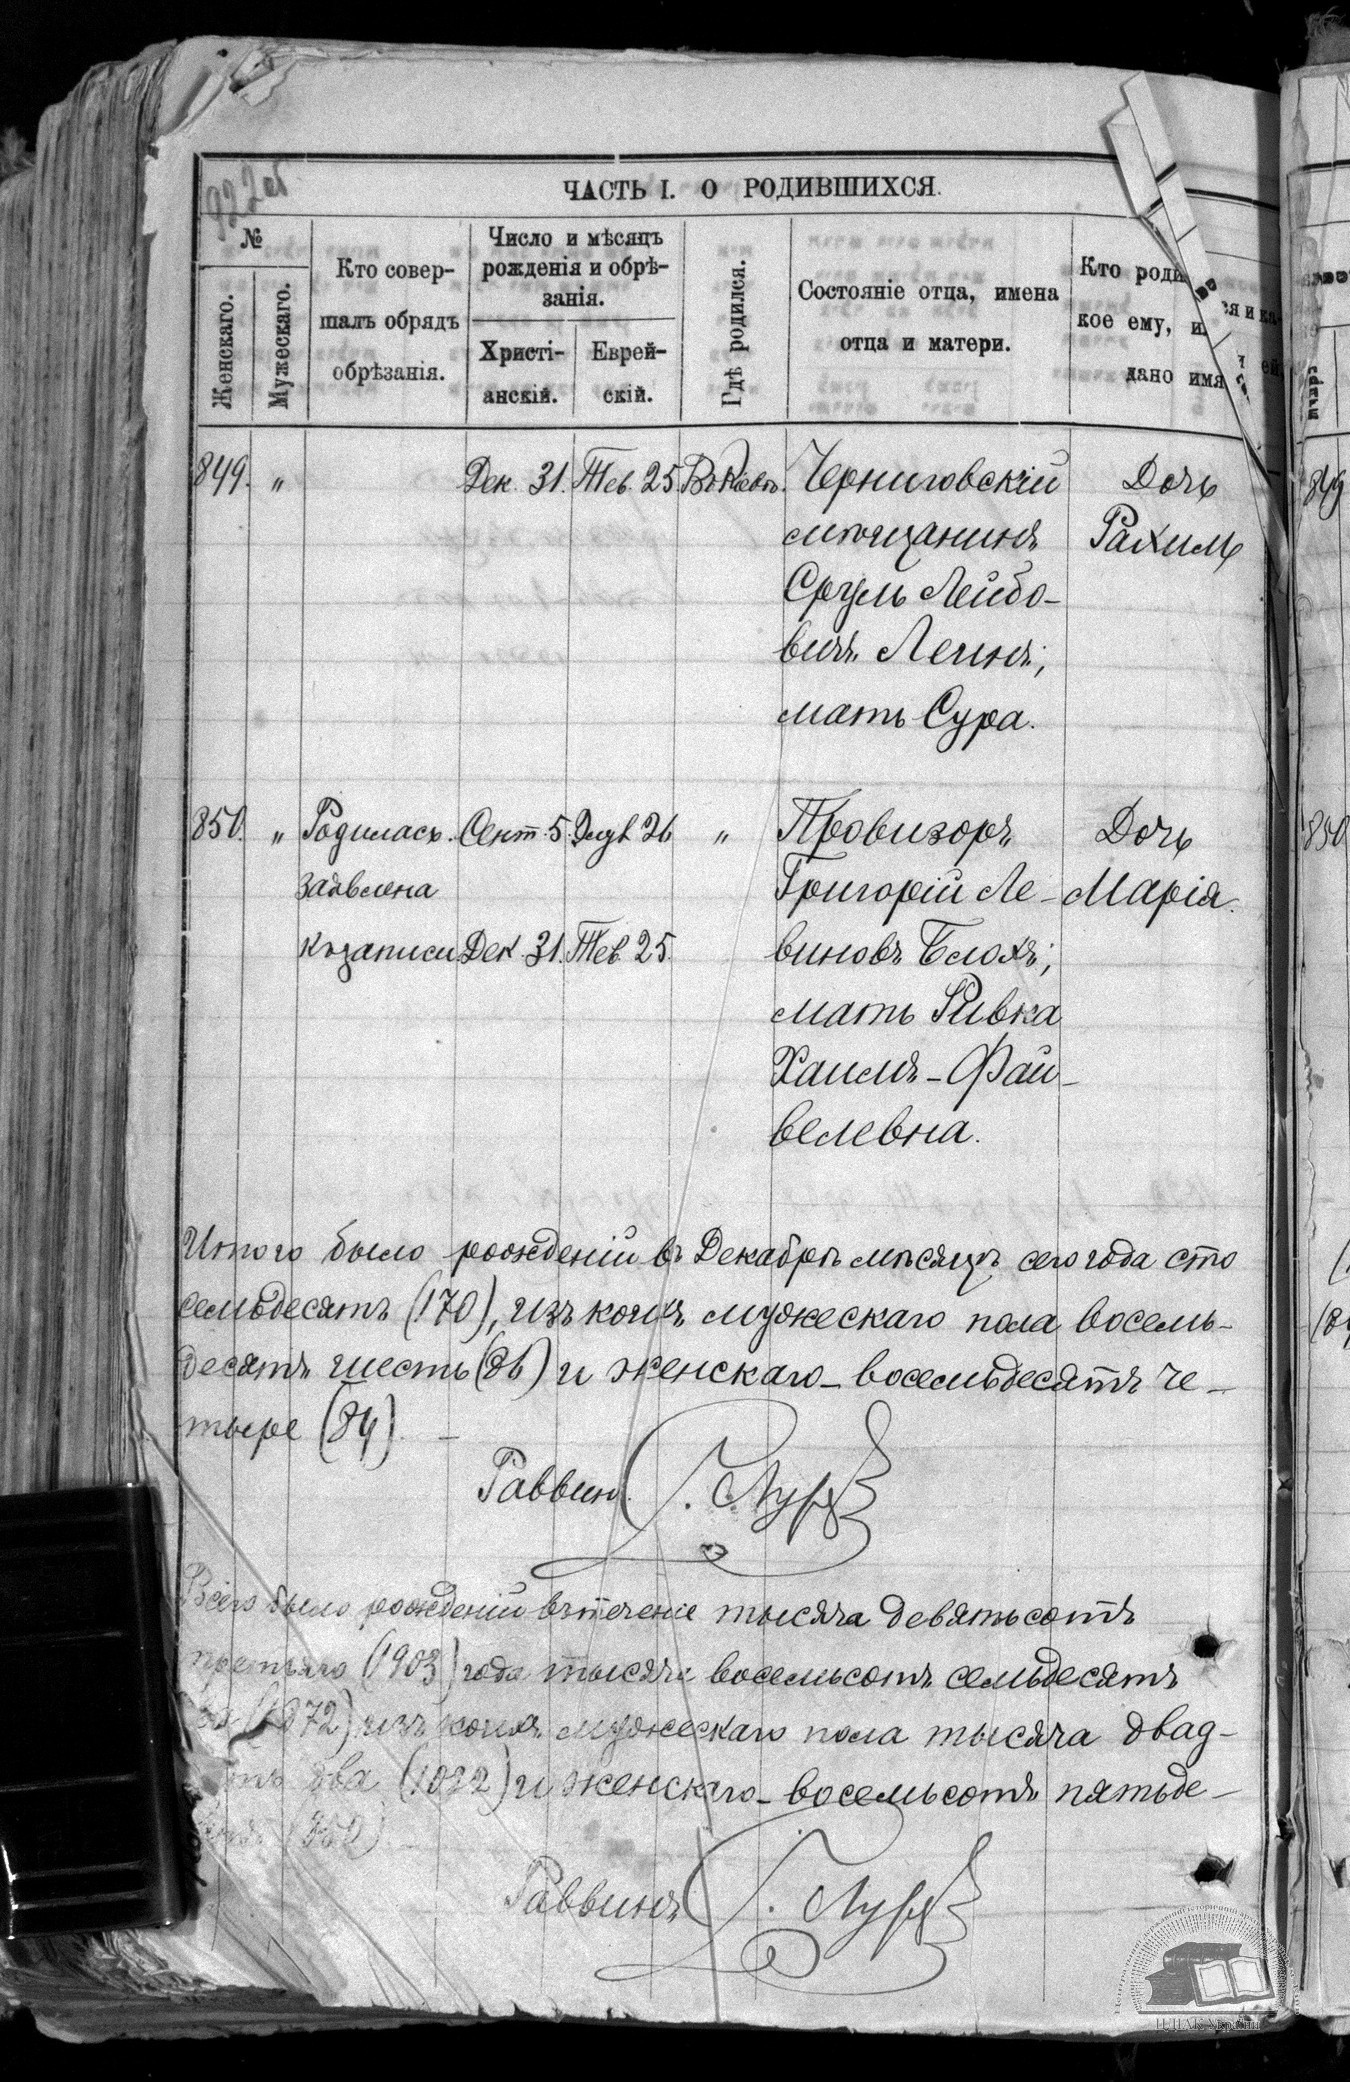 922 об.
ЧАСТЬ I. О РОДИВШИХСЯ.
№
Женскаго.
Мужескаго.
Кто совер-
шалъ обрядъ
обрѣзанія.
Число и мѣсяцъ
рожденія и обрѣ-
занія.
Христі-
анскій.
Еврей-
скій.
Гдѣ родился.
Состояніе отца, имена
отца и матери.
Кто роди
кое ему, и
дано имя
849. " Дек. 31. Тев. 25 Въ Кіевѣ. Черниговскій Дочь
мѣщанинъ Рахиль
Сруль Лейбо-
вичъ Ленинъ;
мать Сура.
850. " Родилась. Сент. 5. Элул 26 " Провизоръ Дочь
заявлена Григорій Ле- Марія.
къ записи Дек. 31. Тев. 25. виновъ Блохъ;
мать Ривка
Хаимъ-Фай-
велевна.
Итого было рожденій въ Декабрѣ мѣсяцѣ сего года сто
семьдесятъ (170), изъ коихъ мужескаго пола восемь-
десятъ шесть (86) и женскаго - восемьдесятъ че-
тыре (84). -
Раввинъ
Всего было рожденій въ теченіе тысяча девятьсотъ
третьяго (1903) года тысяча восемьсотъ семьдесятъ
два (1872) изъ коихъ мужескаго пола тысяча двад-
два (1022) и женскаго - восемьсотъ пятьде-
(850)
Раввинъ
849
850
ЦДІАК України